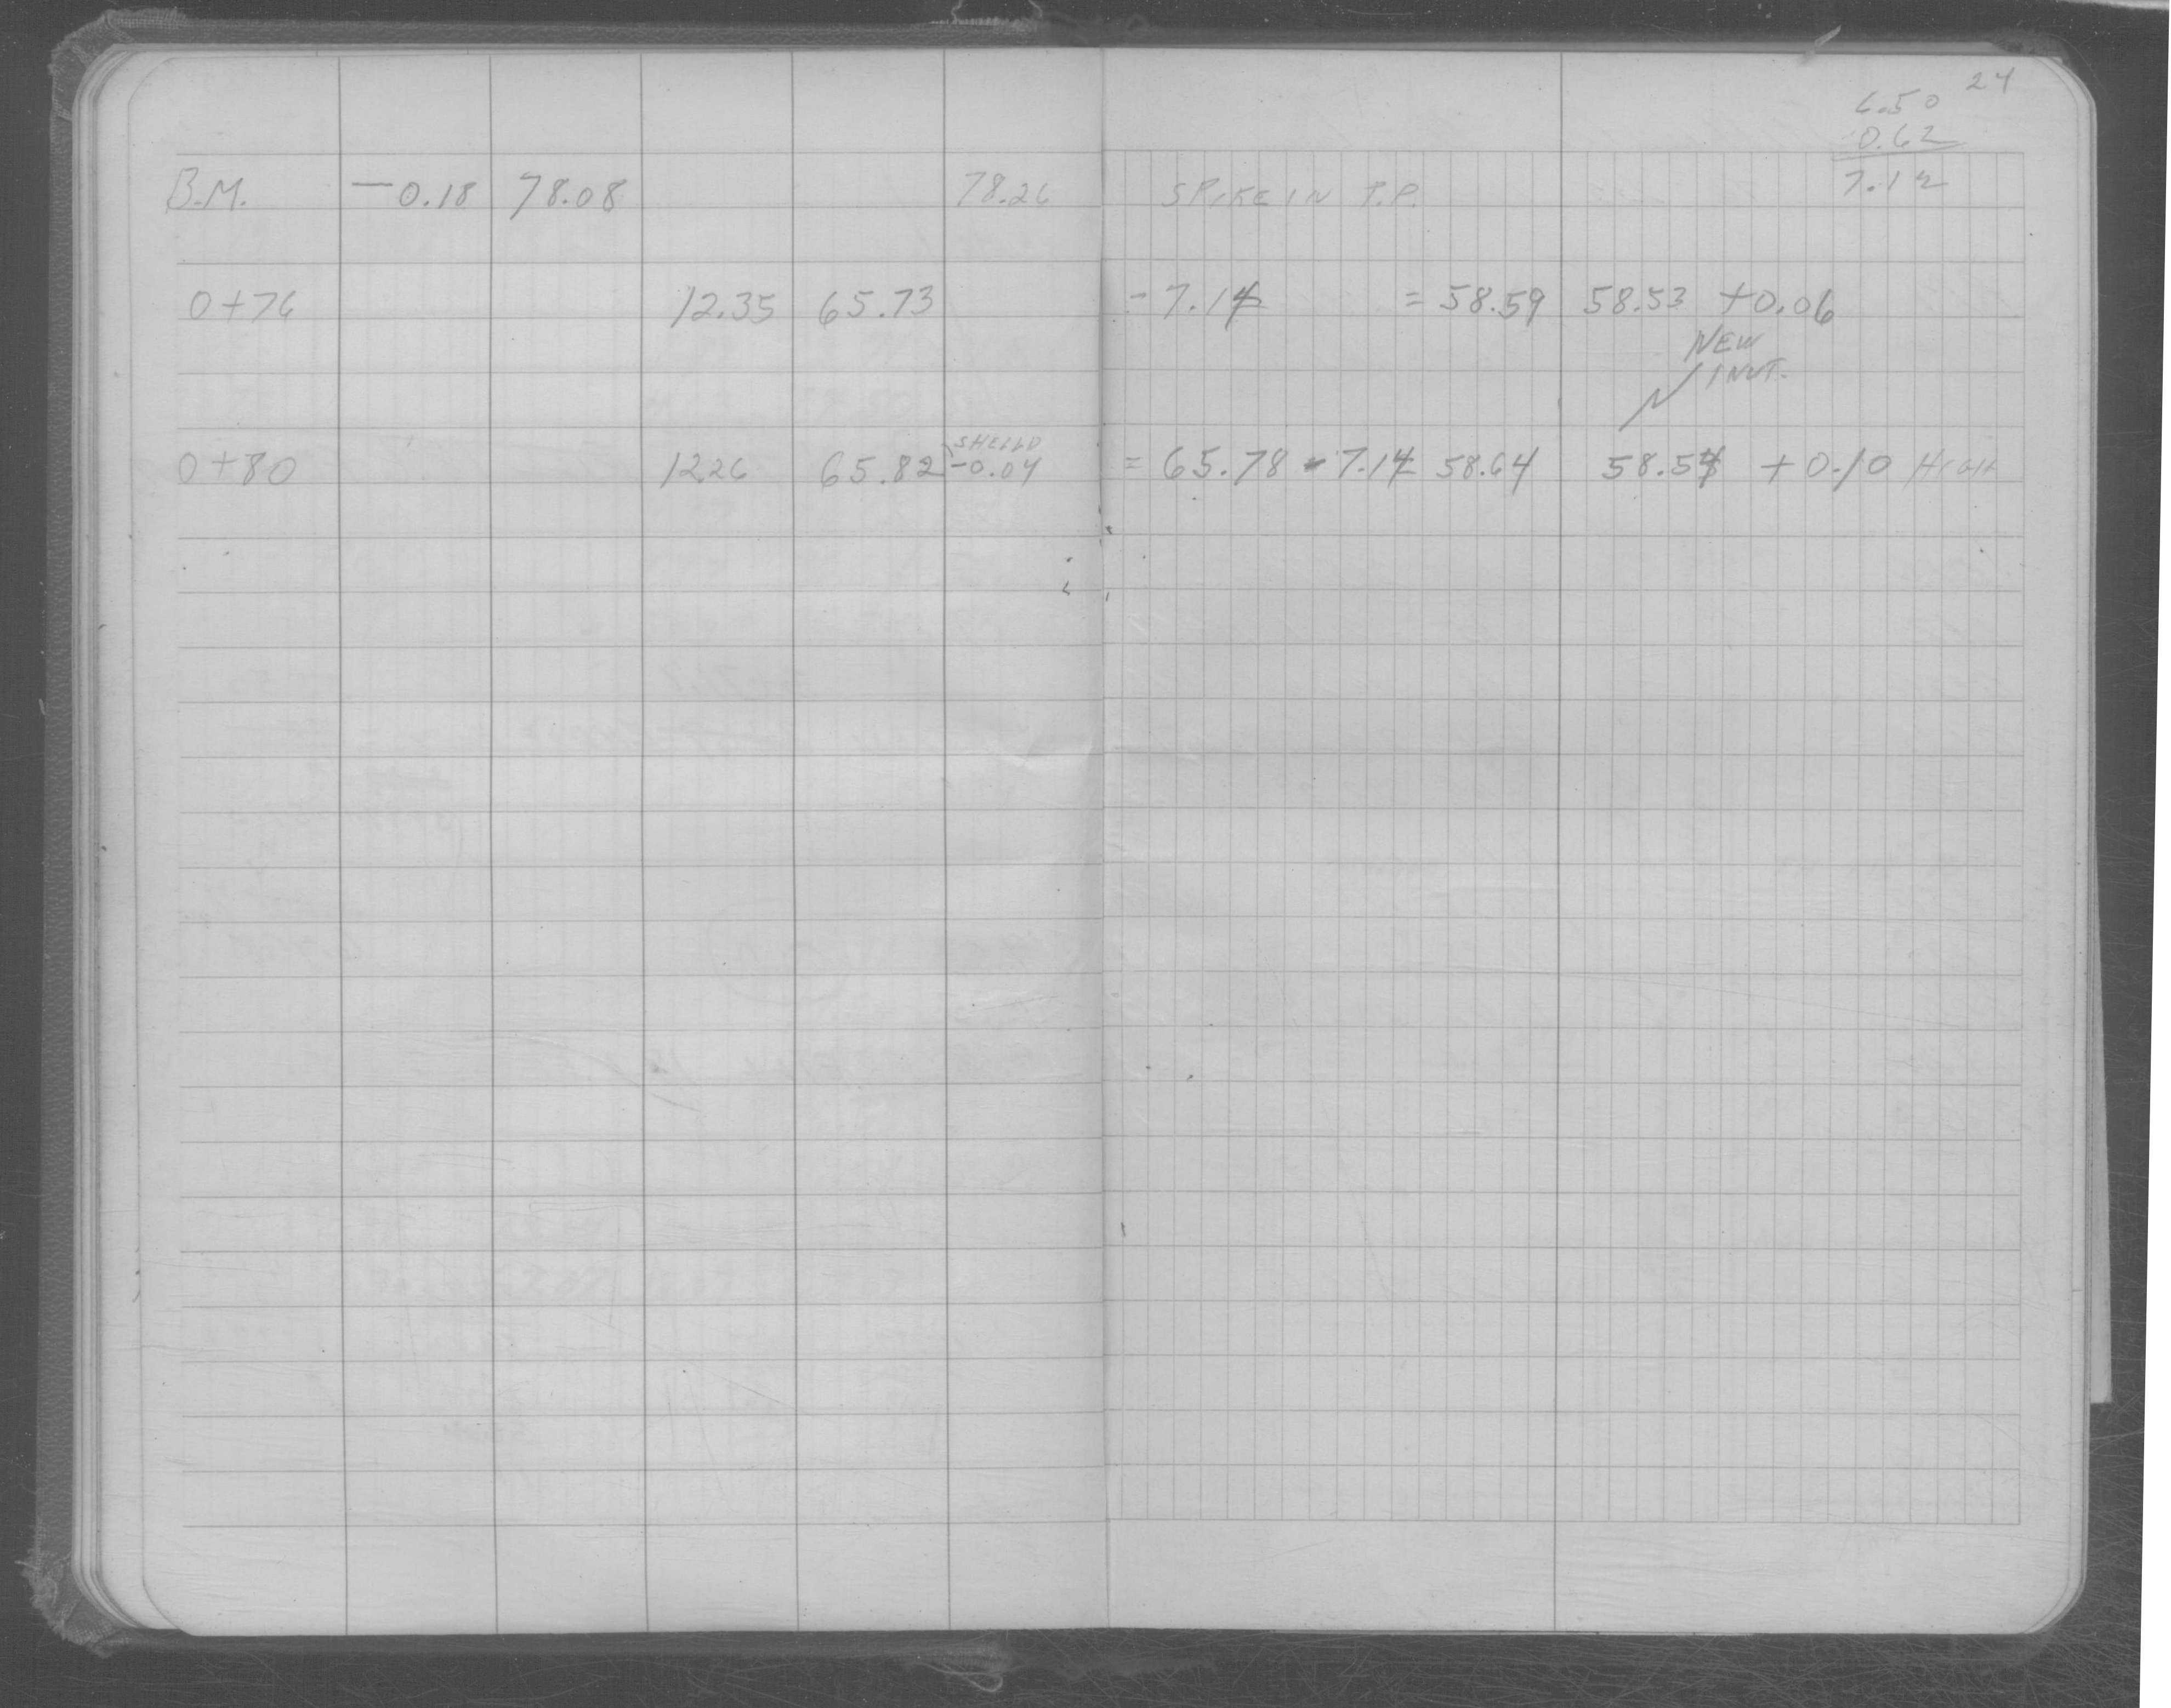 24
6.50
0.62
7.12
B.M. -0.18 78.08 78.26 SPIKE IN P.P.
0+76 12.35 65.73 -7.14 = 58.59 58.53 +0.06
NEW
INVT.
SHELLD
0+80 12.26 65.82 -0.04 = 65.78 - 7.14 58.64 58.54 +0.10 HIGH